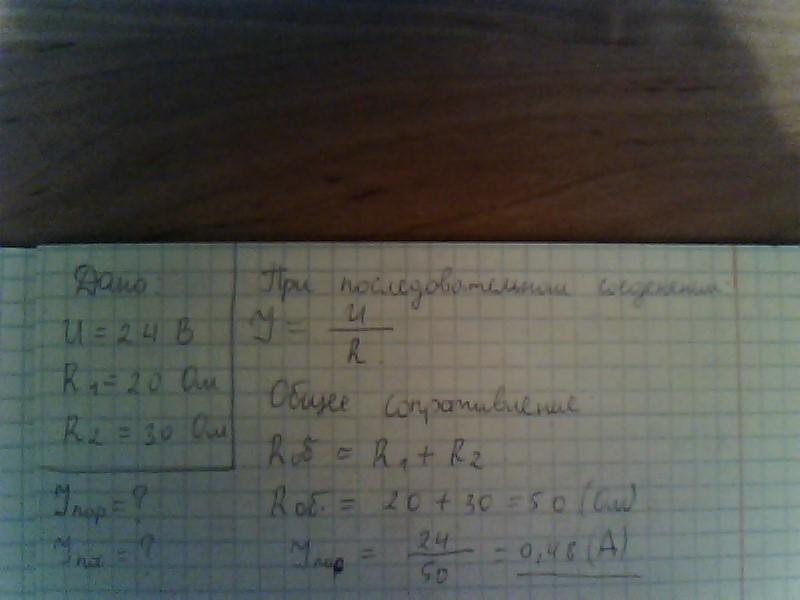 Дано:
U = 24 В
R1 = 20 Ом
R2 = 30 Ом
Iпар = ?
Iпос = ?
При последовательном соединении:
I = U / R
Общее сопротивление:
Rоб = R1 + R2
Rоб. = 20 + 30 = 50 (Ом)
Iпар = 24 / 50 = 0,48 (А)